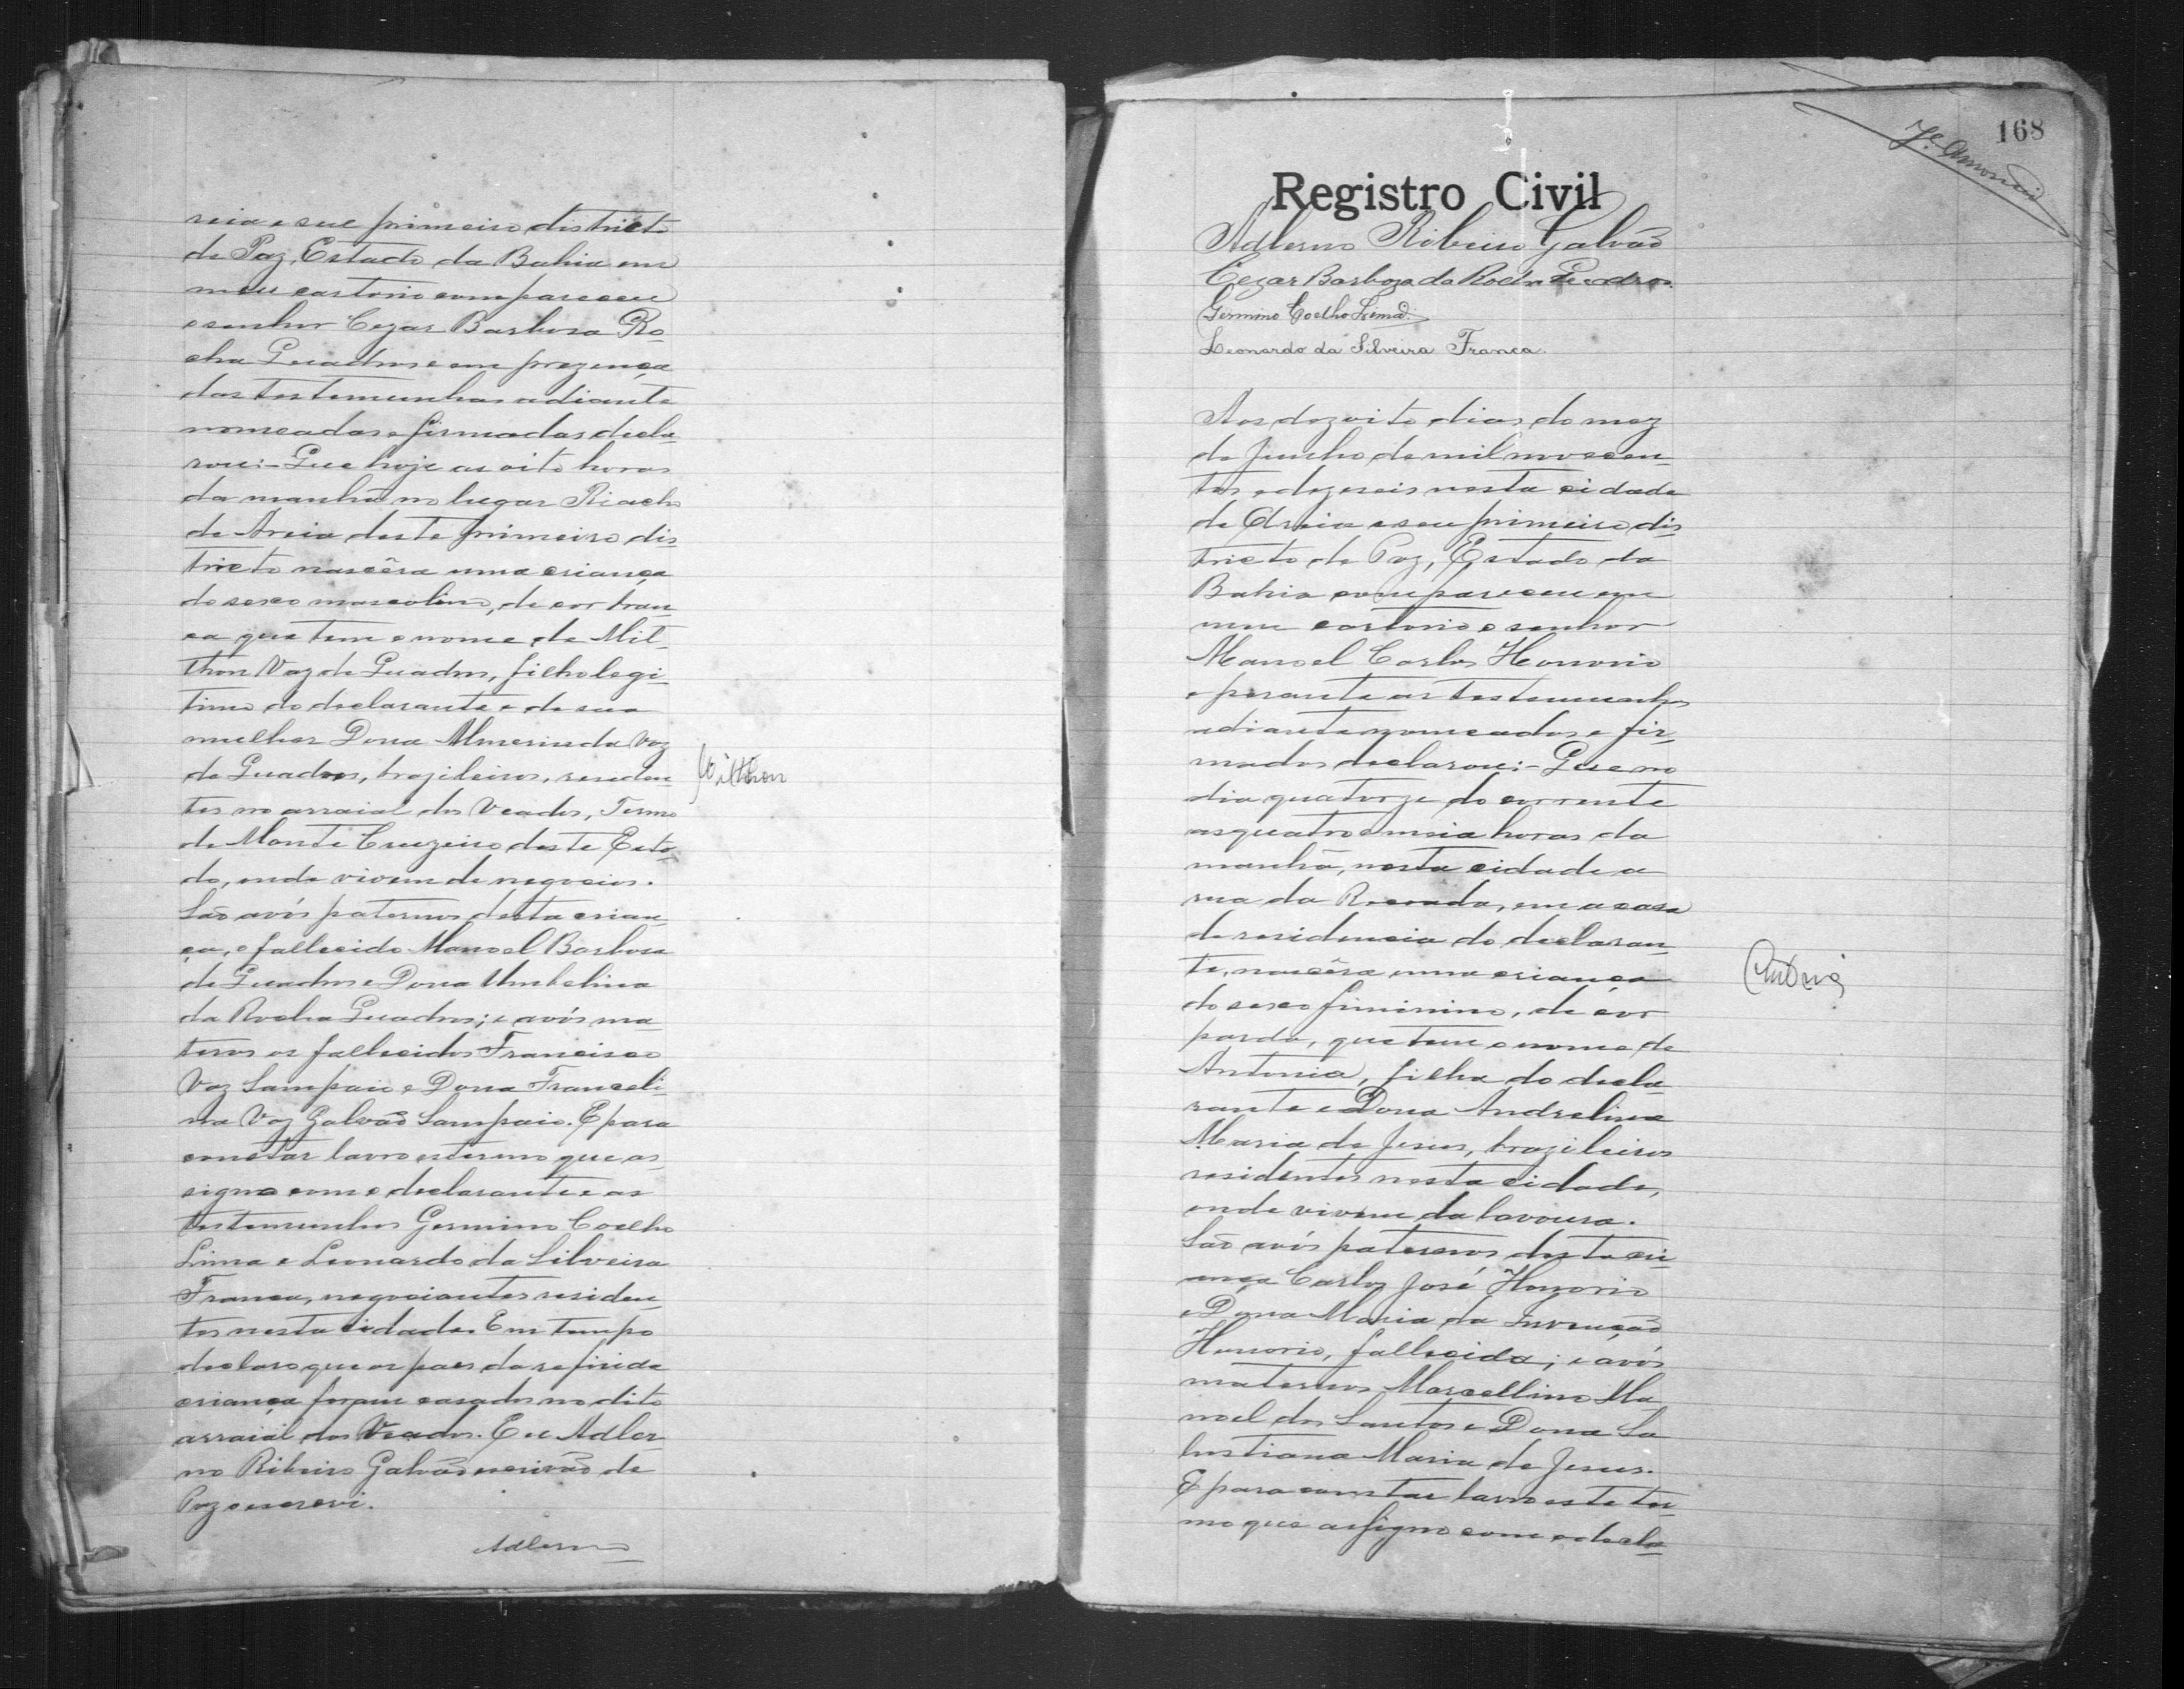 reia e seu primeiro districto
de Paz, Estado da Bahia em
meu cartorio compareceu
o senhor Cezar Barbosa Ro-
cha Quadros e em prezença
das testemunhas adiante
nomeadas e firmadas decla-
rou:- Que hoje as oito horas
da manhã no lugar Riacho
de Areia deste primeiro dis-
tricto nascêra uma criança
do sexo masculino, de cor bran-
ca que tem o nome de Mil-
thon Vaz de Quadros, filho legi-
timo do declarante e de sua
mulher Dona Almerinda Vaz
de Quadros, brazileiros, residen-
tes no arraial dos Veados, Termo
de Monte Cruzeiro deste Esta-
do, onde vivem de negocios.
São avós paternos desta crian-
ça, o fallecido Manoel Barbosa
de Quadros e Dona Umbelina
da Rocha Quadros; e avós ma-
ternos os fallecidos Francisco
Vaz Sampaio e Dona Franceli-
na Vaz Galvão Sampaio. E para
constar lavro este termo que as-
signo com o declarante e as
testemunhas Germino Coelho
Lima e Leonardo da Silveira
Franca, negociantes residen-
tes nesta cidade. Em tempo
declaro que os paes da referida
criança foram casados no dito
arraial dos Veados. Eu Adler-
no Ribeiro Galvão escrivão de
Paz o escrevi.
Adlerno
Milthon
168
Registro Civil
Adlerno Ribeiro Galvão
Cezar Barboza da Rocha Quadros.
Germino Coelho Lima
Leonardo da Silveira Franca.
Aos dezoito dias do mez
de Junho de mil novecen-
tos e dezeseis nesta cidade
de Areia e seu primeiro dis-
tricto de Paz, Estado da
Bahia compareceu em
meu cartorio o senhor
Manoel Carlos Honorio
e perante as testemunhas
adiante nomeadas e fir-
madas declarou:- Que no
dia quatorze do corrente
as quatro e meia horas da
manhã, nesta cidade a
rua da em a casa
de residencia do declaran-
te, nascêra uma criança
do sexo feminino, de côr
parda, que tem o nome de
Antonia, filha do decla-
rante e Dona Andrelina
Maria de Jesus, brazileiros
residentes nesta cidade,
onde vivem da lavoura.
São avós paternos desta cri-
ança Carlos José Honorio
e Dona Maria da
Honorio, fallecida; e avós
maternos Marcellino Ma-
noel dos Santos e Dona Sa-
lustiana Maria de Jesus.
E para constar lavro este ter-
mo que assigno com o decla-
Antonia